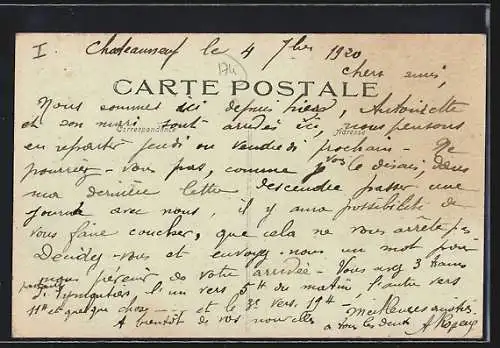 I Chateauneuf le 4 7bre 1920
174
chers amis,
CARTE POSTALE
Nous sommes ici depuis hier, Antoinette
et son mari sont arrivés ici, nous pensons
Correspondance Adresse
en repartir jeudi ou vendredi prochain - Ne
pourriez-vous pas, comme je vous le disais, dans
ma dernière lettre descendre passer une
journée avec nous, il y aura possibilité de
vous faire coucher, que cela ne vous arrête pas
Décidez-vous et envoyez-nous un mot pour
nous prévenir de votre arrivée - Vous avez 3 trains
partant l'un vers 5h du matin, l'autre vers
11h et quelque chose - et le 3e vers 19h - meilleures amitiés
A bientôt de vos nouvelles à tous les deux